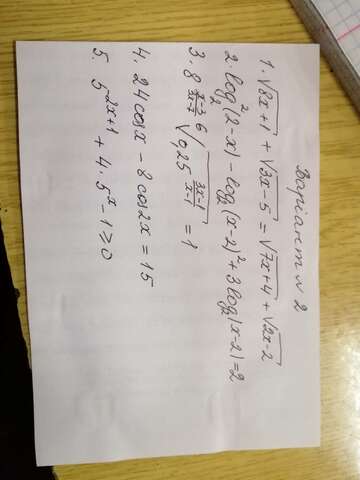 Варіант № 2
1. √8x+1 + √3x-5 = √7x+4 + √2x-2
2. log₂²(2-x) - log₂(x-2)² + 3log₂|x-2| = 2
3. 8^(x-3)/(3x-7) ⁶√0,25^(3x-1)/(x-1) = 1
4. 24cosx - 8cos2x = 15
5. 5^2x+1 + 4·5^x - 1 ≥ 0